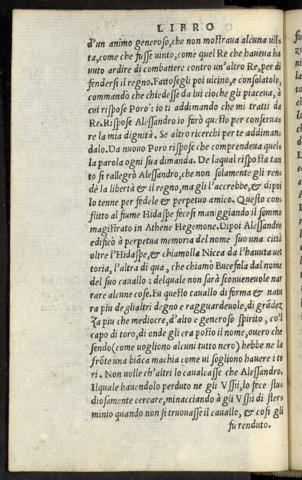 LIBRO
d'un animo generoso, che non mostraua alcuna uilta
ta, come che fusse uinto, come quel Re che haueua ha
uuto ardire di combattere contro un'altro Re, per di
fendersi il regno. Fattosegli poi uicino, e consolatolo,
commando che chiedesse da lui cioche gli piaceua, à
cui rispose Poro: io ti addimando che mi tratti da
Re. Rispose Alessandro io farò questo per conserua
re la mia dignità. Se altro ricerchi per te addiman
dalo. Da nuouo Poro rispose che comprendeua quel
la parola ogni sua dimanda. De la qual risposta tan
to si rallegrò Alessandro, che non solamente gli ren
dè la libertà & il regno, ma gli l'accrebbe, & dipoi
lo tenne per fedele & perpetuo amico. Questo con
flitto al fiume Hidaspe fecesi maniggiando il sommo
magistrato in Athene Hegemone. Dipoi Alessandro
edificò à perpetua memoria del nome suo una città
oltre l'Hidaspe, & chiamolla Nicea da l'hauuta uet
toria, l'altra di qua, che chiamò Bucefala dal nome
del suo cauallo: del quale non sarà sconueneuole nar
rare alcune cose. Fu questo cauallo di forma & natu
ra piu de gli altri degno e ragguardeuole, di grãdez
za piu che mediocre, d'alto e generoso spirito, co'l
capo di toro, di onde gli era posto il nome, ouero che
sendo (come uogliono alcuni tutto nero) hebbe ne la
frõte una biãca machia come ui sogliono hauere i to
ri. Non uolle ch'altri lo caualcasse che Alessandro.
Il quale hauendolo perduto ne gli Vssii, lo fece stu
diosamente cercare, minacciando à gli Vssii di ster
minio quando non si trouasse il cauallo, & cosi gli
fu renduto.